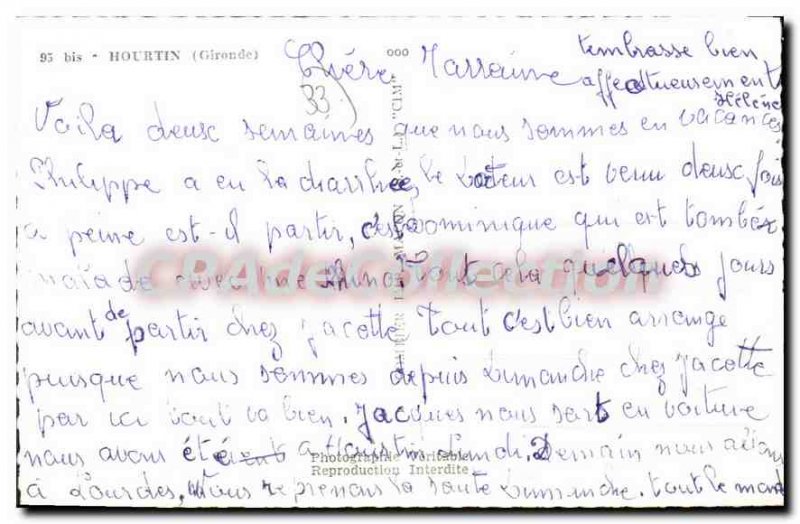 95 bis - HOURTIN (Gironde)
ooo
t'embrasse bien
affectueusement
Hélène
Chère Marraine
33
Voila deux semaines que nous sommes en vacances
Philippe a eu la diarrhée, le docteur est venu deux fois
a peine est-il partir, c'est Dominique qui est tombée
malade avec une Rhino tout cela quelques jours
avant de partir chez Jacotte Tout c'est bien arrange
puisque nous sommes depuis Dimanche chez Jacotte
par ici tout va bien. Jacques nous sort en voiture
nous avons été a Hourtin Lundi. Demain nous allons
à Lourdes, Nous reprenons la route Dimanche. tout le monde
Photographie Véritable
Reproduction Interdite
"CIM"
CPAdeCollection